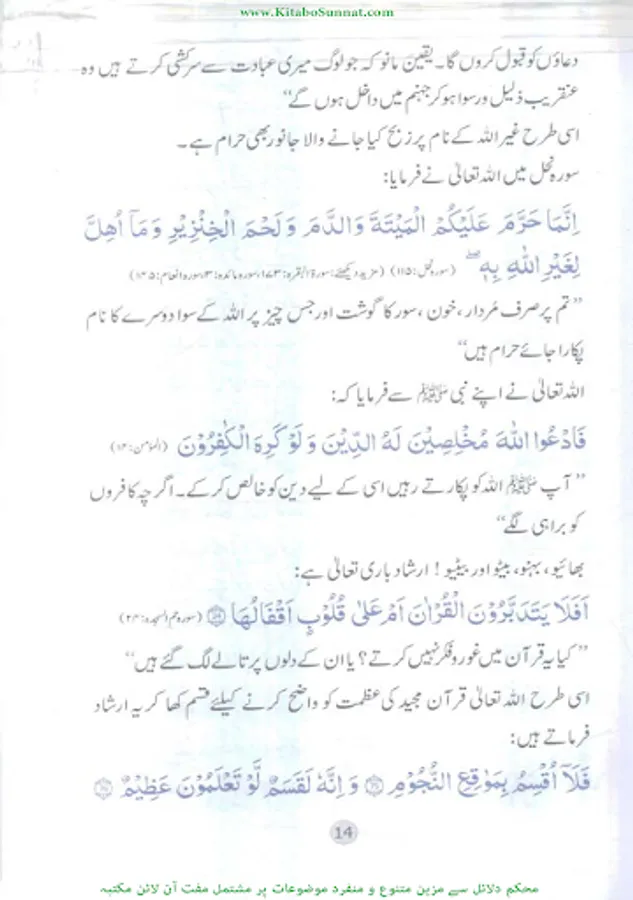 www.KitaboSunnat.com
دعاؤں کو قبول کروں گا۔ یقین مانو کہ جو لوگ میری عبادت سے سرکشی کرتے ہیں وہ
عنقریب ذلیل و رسوا ہو کر جہنم میں داخل ہوں گے“
اسی طرح غیر اللہ کے نام پر ذبح کیا جانے والا جانور بھی حرام ہے۔
سورہ نحل میں اللہ تعالیٰ نے فرمایا:
اِنَّمَا حَرَّمَ عَلَيْكُمُ الْمَيْتَةَ وَالدَّمَ وَلَحْمَ الْخِنْزِيْرِ وَمَآ اُهِلَّ
لِغَيْرِ اللّٰهِ بِهٖ ۖ (سورہ نحل:۱۱۵) (مزید دیکھئے: سورۃ البقرہ:۱۷۳، سورہ مائدہ:۳، سورہ انعام:۱۴۵)
”تم پر صرف مُردار، خون، سور کا گوشت اور جس چیز پر اللہ کے سوا دوسرے کا نام
پکارا جائے حرام ہیں“
اللہ تعالیٰ نے اپنے نبی ﷺ سے فرمایا کہ:
فَادْعُوا اللّٰهَ مُخْلِصِيْنَ لَهُ الدِّيْنَ وَلَوْ كَرِهَ الْكٰفِرُوْنَ (المؤمن:۱۴)
”آپ ﷺ اللہ کو پکارتے رہیں اسی کے لیے دین کو خالص کر کے۔ اگرچہ کافروں
کو برا ہی لگے“
بھائیو، بہنو، بیٹو اور بیٹیو! ارشاد باری تعالیٰ ہے:
اَفَلَا يَتَدَبَّرُوْنَ الْقُرْاٰنَ اَمْ عَلٰى قُلُوْبٍ اَقْفَالُهَا (سورہ حم السجدہ:۲۴)
”کیا یہ قرآن میں غور و فکر نہیں کرتے؟ یا ان کے دلوں پر تالے لگ گئے ہیں“
اسی طرح اللہ تعالیٰ قرآن مجید کی عظمت کو واضح کرنے کیلئے قسم کھا کر یہ ارشاد
فرماتے ہیں:
فَلَآ اُقْسِمُ بِمَوٰقِعِ النُّجُوْمِ وَاِنَّهٗ لَقَسَمٌ لَّوْ تَعْلَمُوْنَ عَظِيْمٌ
14
محکم دلائل سے مزین متنوع و منفرد موضوعات پر مشتمل مفت آن لائن مکتبہ